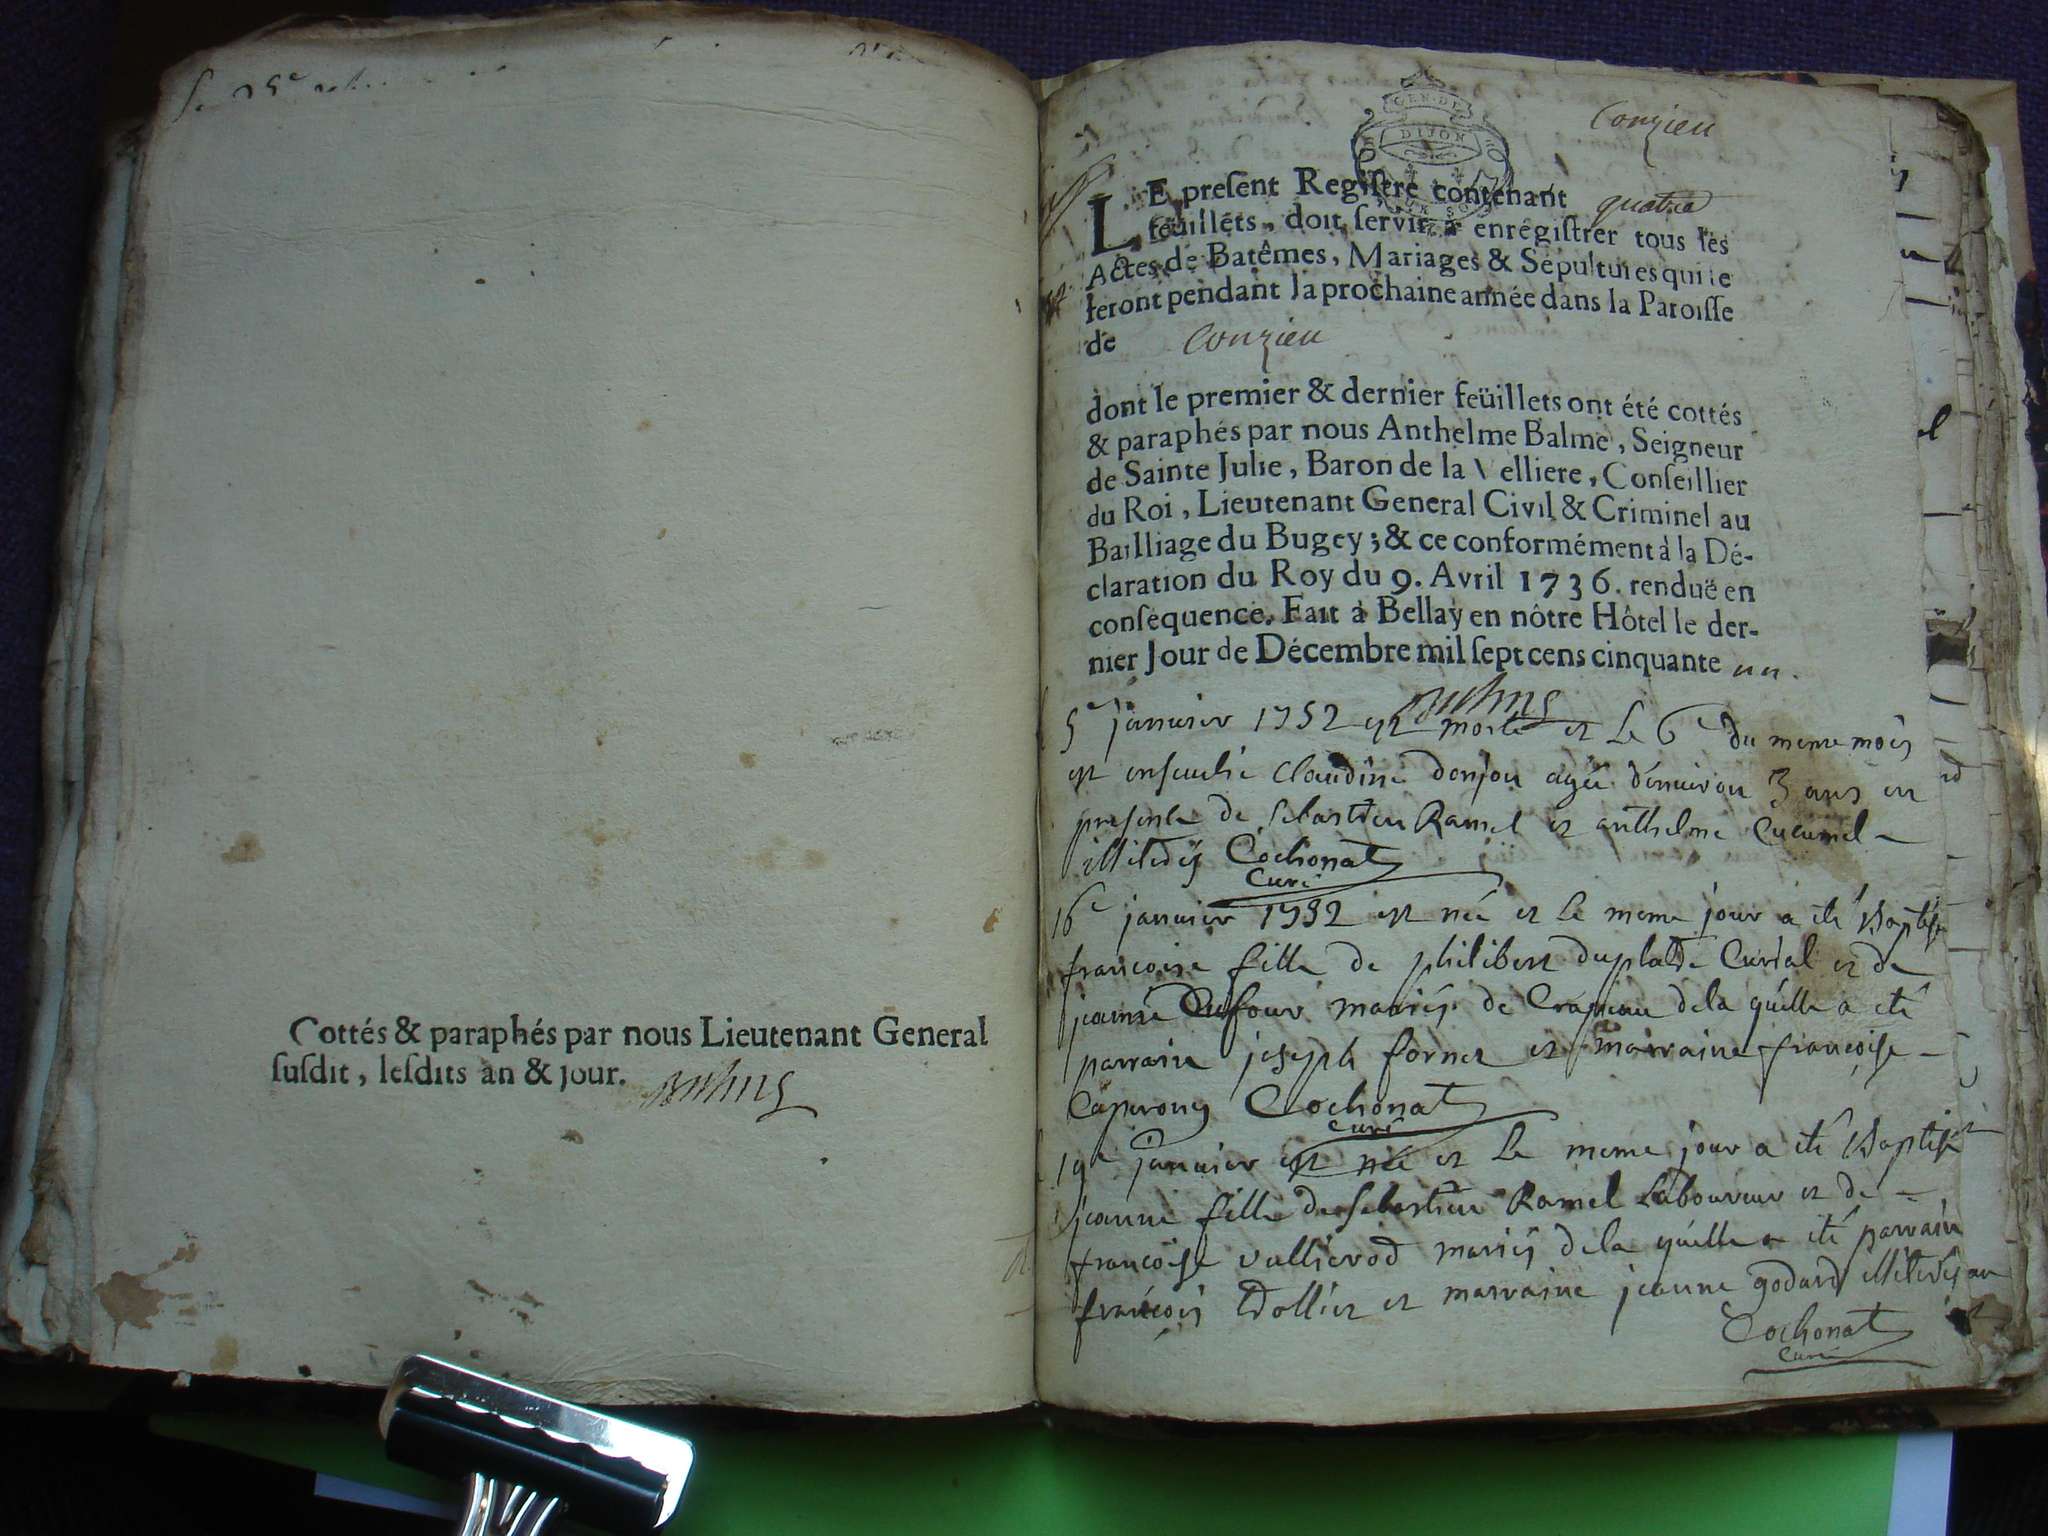 Cottés & paraphés par nous Lieutenant General
susdit, lesdits an & jour.
GEN. DE
DIJON
Conzieu
LE present Registre contenant quatre
feüillets, doit servir à enrégistrer tous les
Actes de Batêmes, Mariages & Sepultures qui se
feront pendant la prochaine année dans la Paroisse
de Conzieu
dont le premier & dernier feüillets ont été cottés
& paraphés par nous Anthelme Balme, Seigneur
de Sainte Julie, Baron de la Velliere, Conseillier
du Roi, Lieutenant General Civil & Criminel au
Bailliage du Bugey; & ce conformément à la Dé-
claration du Roy du 9. Avril 1736. renduë en
consequence. Fait à Bellay en nôtre Hôtel le der-
nier Jour de Décembre mil sept cens cinquante un.
5e janvier 1752 est morte et le 6e du meme mois
est ensevelie claudine donjou agée d'environ 3 ans en
presence de sebastien Ramel et anthelme Cucumel
illiterés Cochonat
Curé
16e janvier 1752 est née et le meme jour a eté Baptisé
francoise fille de philibert duplatde Curial et de
jeanne Dufour mariés de Crapieau de la quelle a eté
parrain joseph fornet et marraine françoise
Caperony Cochonat
Curé
19e janvier est née et le meme jour a eté Baptisé
jeanne fille de sebastien Ramel Laboureur et de
françoise vullierod mariés de la quelle a eté parrain
françois et marraine jeanne godard illiterés
Cochonat
Curé